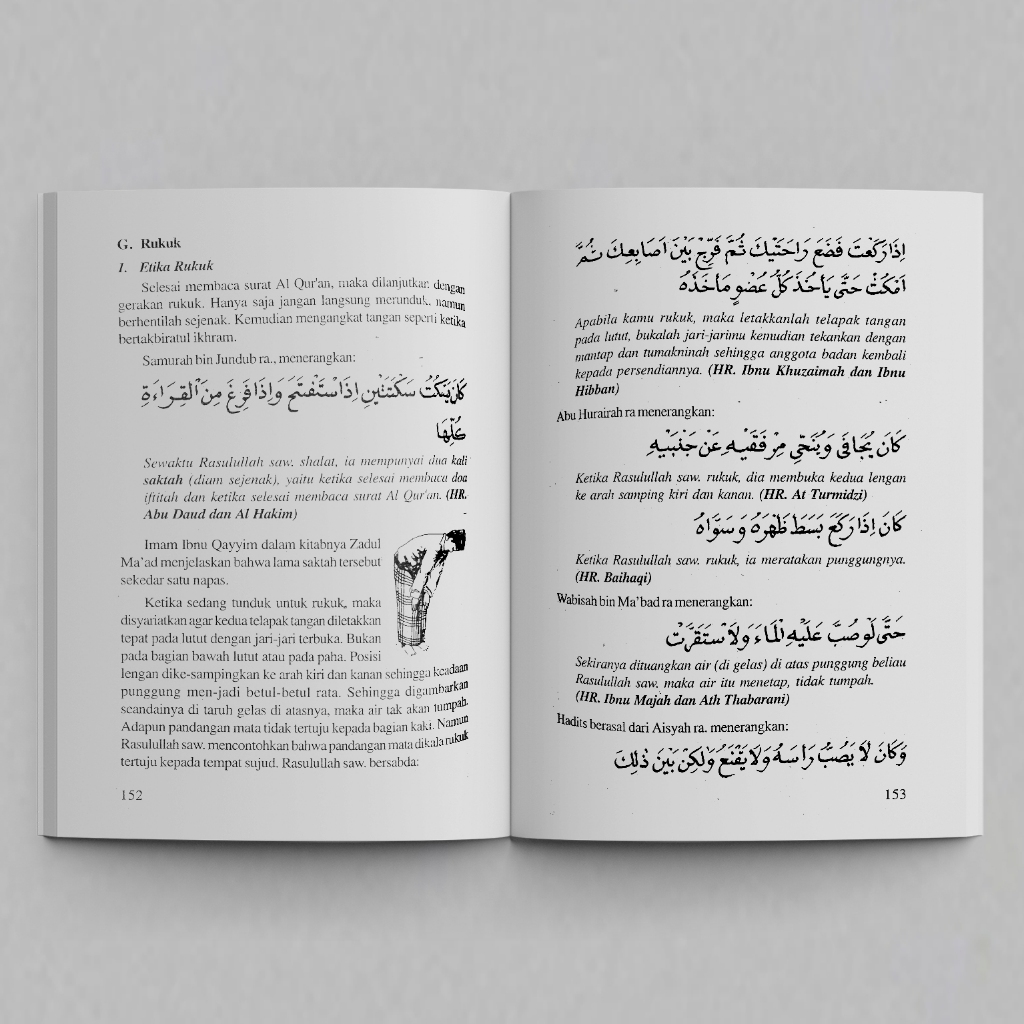 G. Rukuk
1. Etika Rukuk
Selesai membaca surat Al Qur'an, maka dilanjutkan dengan
gerakan rukuk. Hanya saja jangan langsung merunduk, namun
berhentilah sejenak. Kemudian mengangkat tangan seperti ketika
bertakbiratul ikhram.
Samurah bin Jundub ra., menerangkan:
كَانَ يَسْكُتُ سَكْتَتَيْنِ اِذَا اسْتَفْتَحَ وَاِذَا فَرِغَ مِنَ الْقِرَاءَةِ
كُلِّهَا
Sewaktu Rasulullah saw. shalat, ia mempunyai dua kali
saktah (diam sejenak), yaitu ketika selesai membaca doa
iftitah dan ketika selesai membaca surat Al Qur'an. (HR.
Abu Daud dan Al Hakim)
Imam Ibnu Qayyim dalam kitabnya Zadul
Ma'ad menjelaskan bahwa lama saktah tersebut
sekedar satu napas.
Ketika sedang tunduk untuk rukuk, maka
disyariatkan agar kedua telapak tangan diletakkan
tepat pada lutut dengan jari-jari terbuka. Bukan
pada bagian bawah lutut atau pada paha. Posisi
lengan dike-sampingkan ke arah kiri dan kanan sehingga keadaan
punggung men-jadi betul-betul rata. Sehingga digambarkan
seandainya di taruh gelas di atasnya, maka air tak akan tumpah.
Adapun pandangan mata tidak tertuju kepada bagian kaki. Namun
Rasulullah saw. mencontohkan bahwa pandangan mata dikala rukuk
tertuju kepada tempat sujud. Rasulullah saw. bersabda:
152
اِذَا رَكَعْتَ فَضَعْ رَاحَتَيْكَ ثُمَّ فَرِّجْ بَيْنَ اَصَابِعِكَ ثُمَّ
اَمْكُثْ حَتَّى يَأْخُذَ كُلُّ عُضْوٍ مَأْخَذَهُ
Apabila kamu rukuk, maka letakkanlah telapak tangan
pada lutut, bukalah jari-jarimu kemudian tekankan dengan
mantap dan tumakninah sehingga anggota badan kembali
kepada persendiannya. (HR. Ibnu Khuzaimah dan Ibnu
Hibban)
Abu Hurairah ra menerangkan:
كَانَ يُجَافِى وَيُنَحِّى مِرْفَقَيْهِ عَنْ جَنْبَيْهِ
Ketika Rasulullah saw. rukuk, dia membuka kedua lengan
ke arah samping kiri dan kanan. (HR. At Turmidzi)
كَانَ اِذَا رَكَعَ بَسَطَ ظَهْرَهُ وَسَوَّاهُ
Ketika Rasulullah saw. rukuk, ia meratakan punggungnya.
(HR. Baihaqi)
Wabisah bin Ma'bad ra menerangkan:
حَتَّى لَوْصُبَّ عَلَيْهِ الْمَاءَ وَلاَسْتَقَرَّتْ
Sekiranya dituangkan air (di gelas) di atas punggung beliau
Rasulullah saw. maka air itu menetap, tidak tumpah.
(HR. Ibnu Majah dan Ath Thabarani)
Hadits berasal dari Aisyah ra. menerangkan:
وَكَانَ لاَ يَصُبُّ رَاسَهُ وَلاَ يَقْنَعُ وَلٰكِنْ بَيْنَ ذٰلِكَ
153